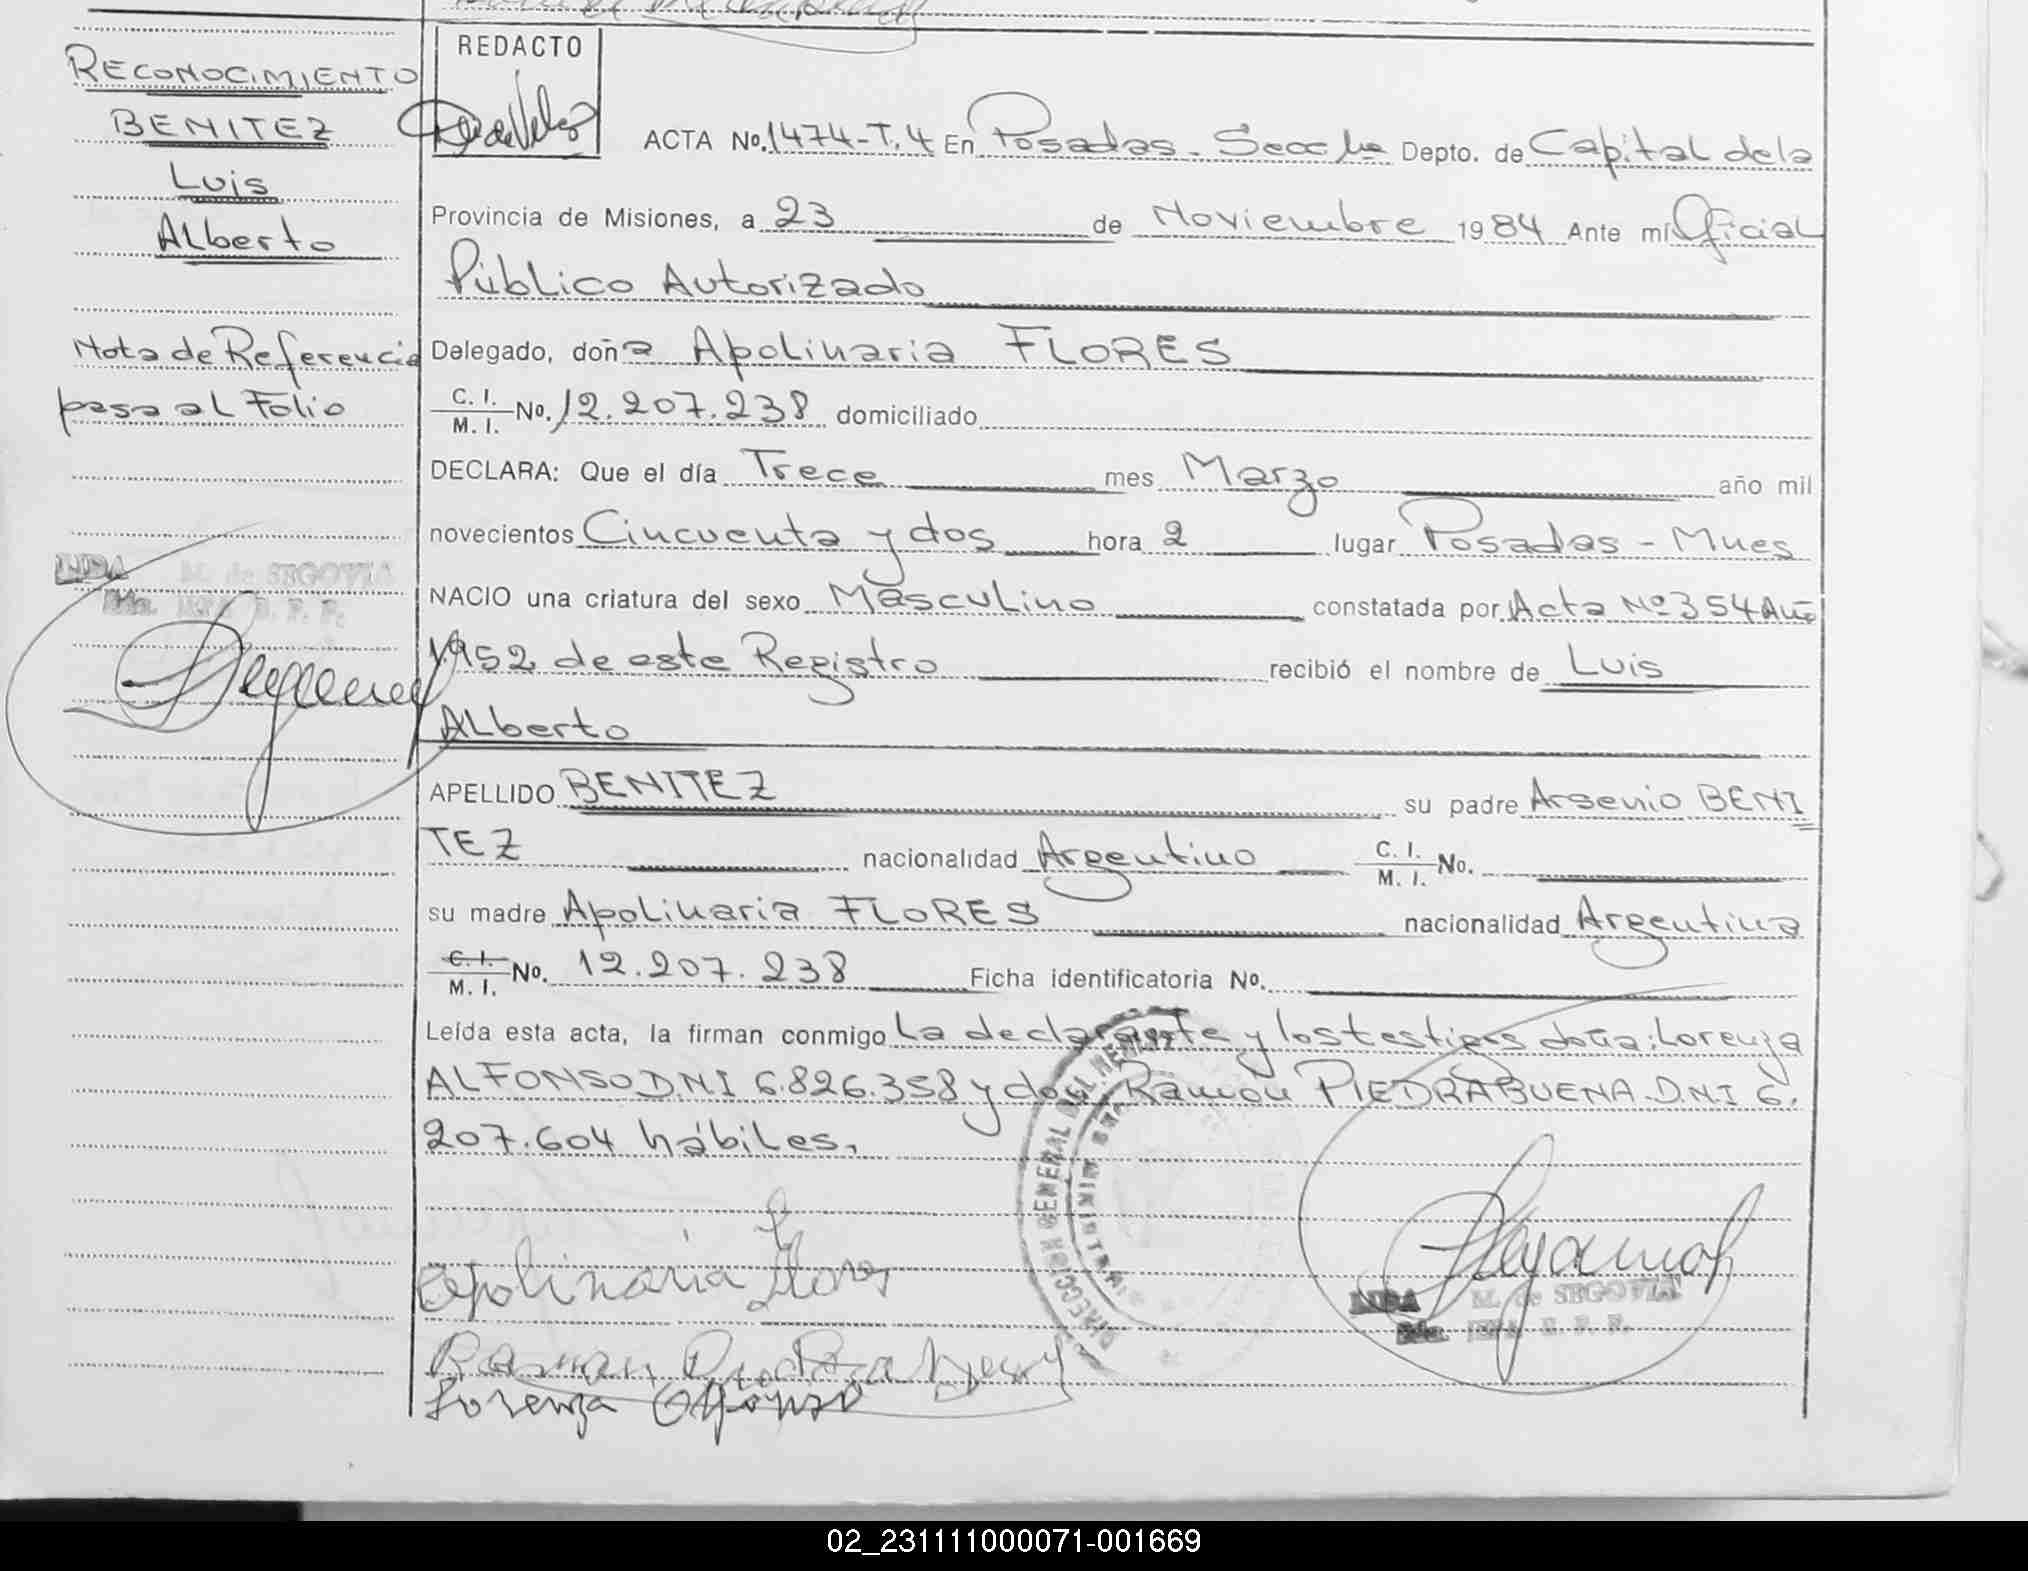 RECONOCIMIENTO
BENITEZ
Luis
Alberto
Nota de Referencia
pasa al Folio
LIDA M. de SEGOVIA
REDACTO
ACTA No. 1474-T.4 En Posadas - Secc 1ra Depto. de Capital de la
Provincia de Misiones, a 23 de Noviembre 1984 Ante mí Oficial
Público Autorizado
Delegado, doña Apolinaria FLORES
C. I. M. I. No. 12.207.238 domiciliado
DECLARA: Que el día Trece mes Marzo año mil
novecientos Cincuenta y dos hora 2 lugar Posadas - Mnes
NACIO una criatura del sexo Masculino constatada por Acta Nº 354 Año
1952 de este Registro recibió el nombre de Luis
Alberto
APELLIDO BENITEZ su padre Arsenio BENI
TEZ nacionalidad Argentino C. I. M. I. No.
su madre Apolinaria FLORES nacionalidad Argentina
C. I. M. I. No. 12.207.238 Ficha identificatoria No.
Leída esta acta, la firman conmigo la declarante y los testigos doña: Lorenza
ALFONSO D.N.I 6.826.358 y don Ramón PIEDRABUENA. D.N.I 6.
207.604 hábiles.
DIRECCION GENERAL DEL
Apolinaria Flores
LIDA M. de SEGOVIA
Ramon Piedra Buena
Lorenza Alfonso
02_231111000071-001669